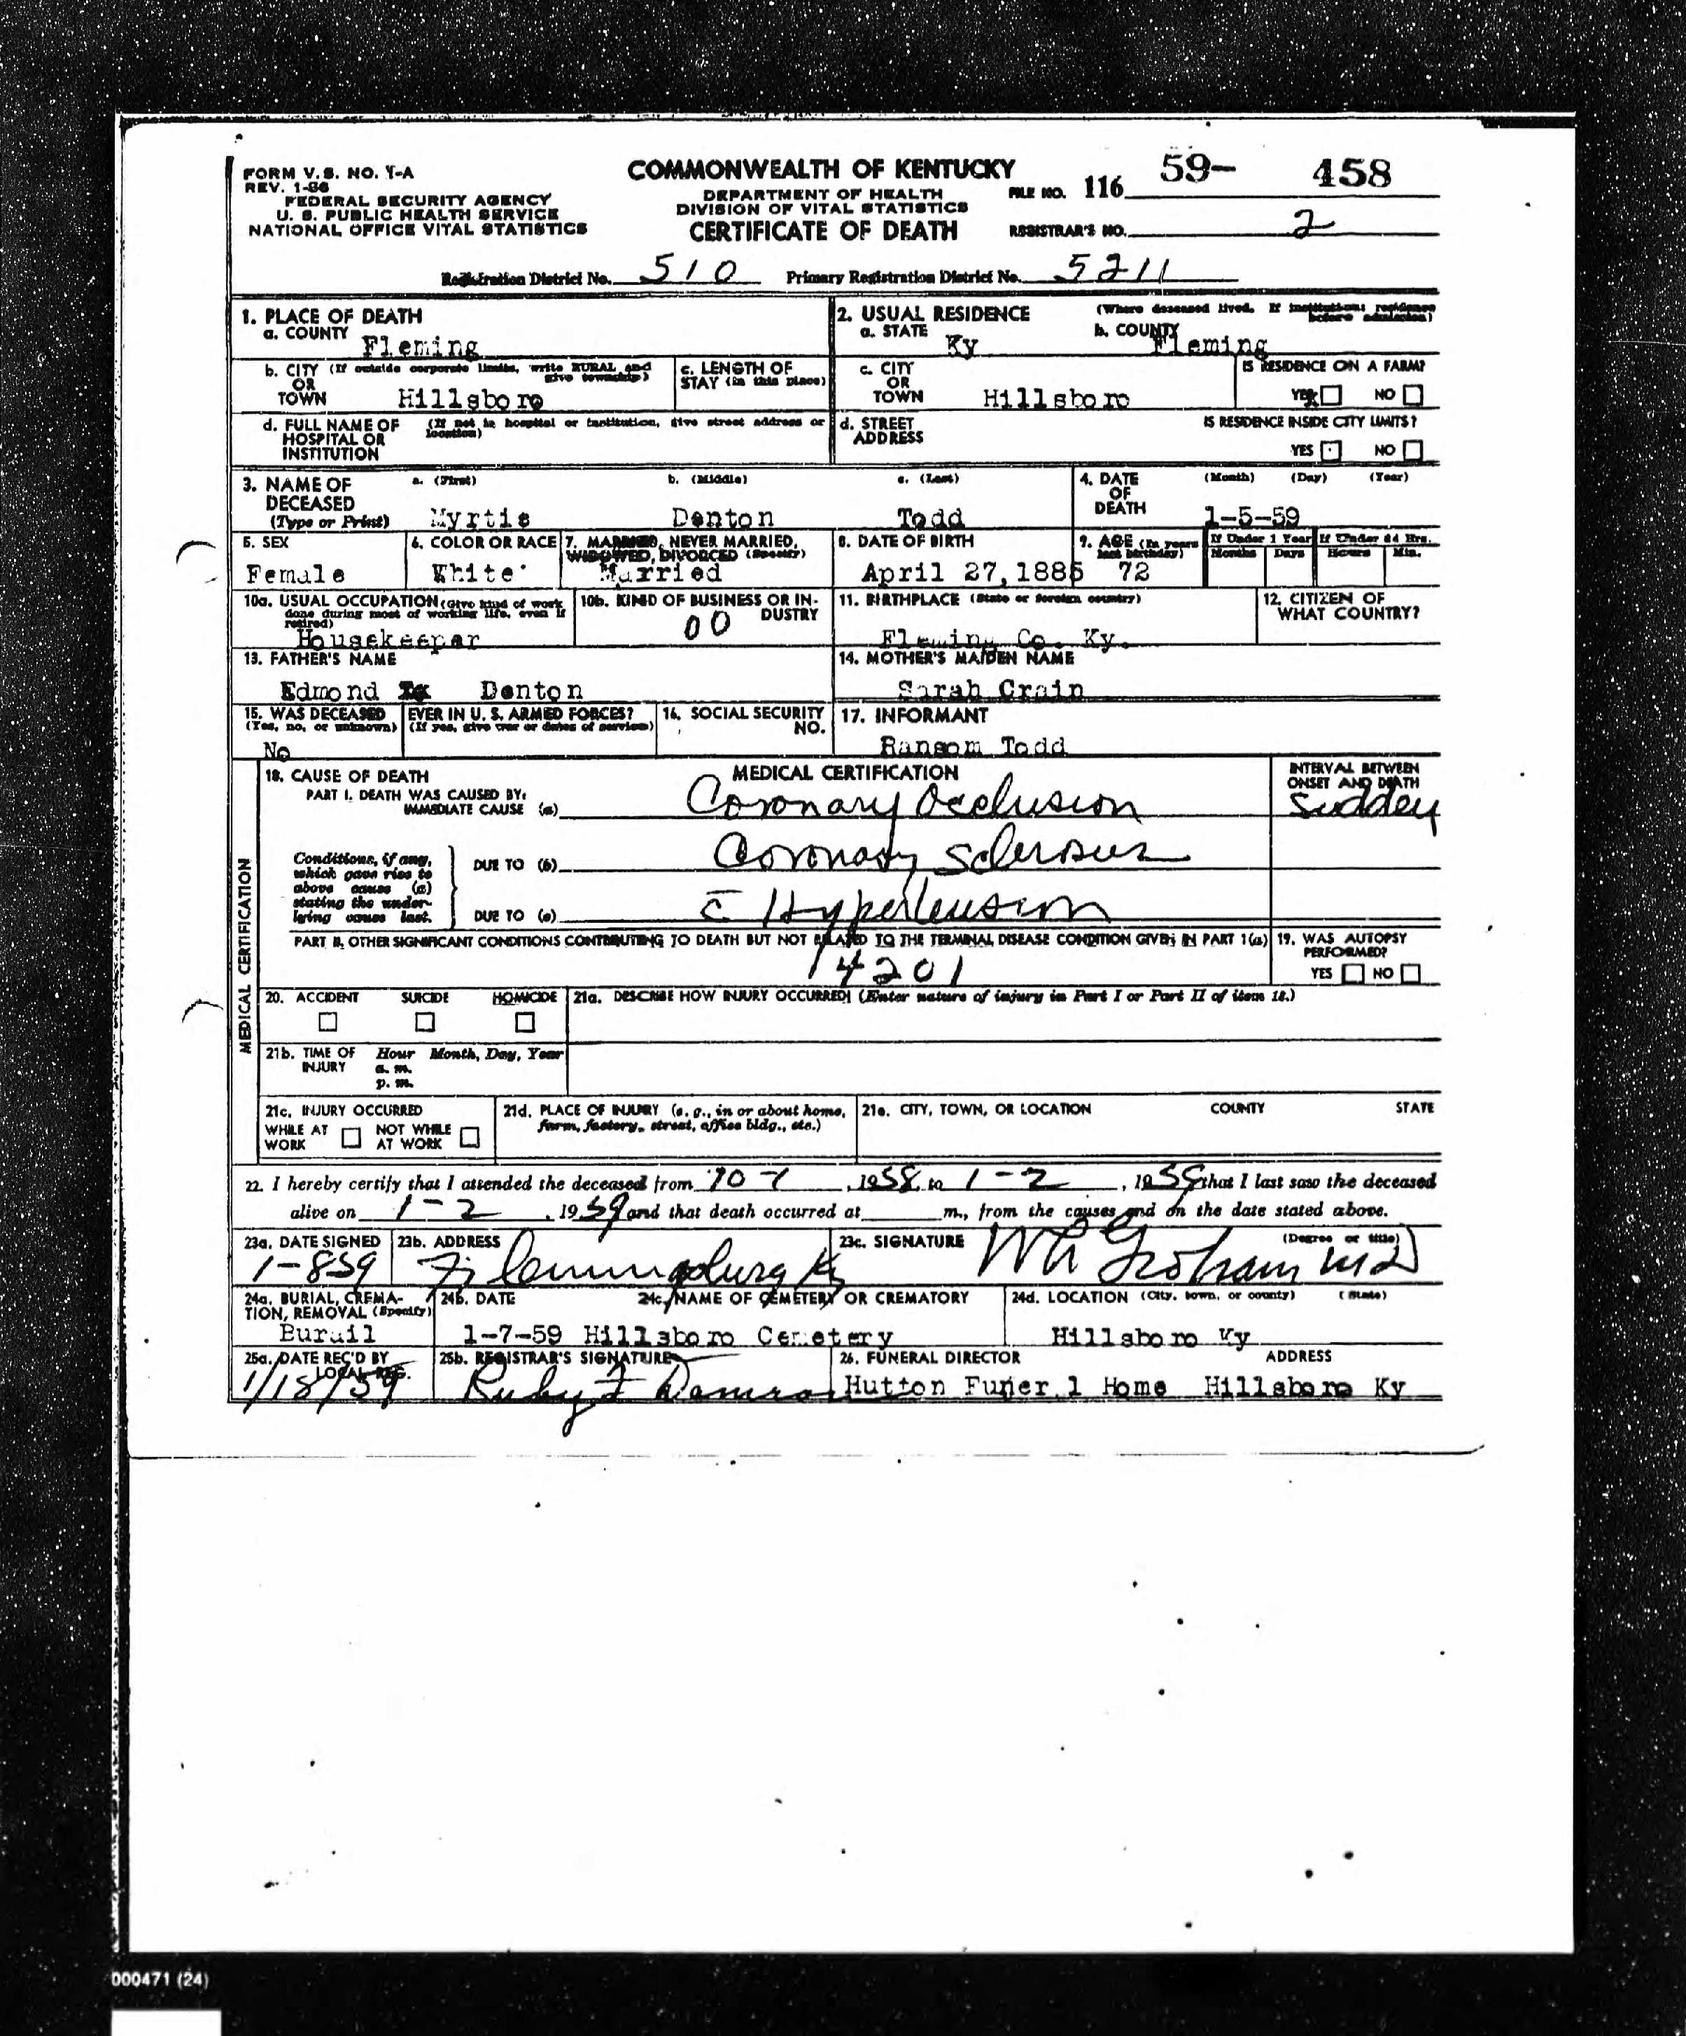 FORM V. S. NO. 1-A
REV. 1-56
FEDERAL SECURITY AGENCY
U. S. PUBLIC HEALTH SERVICE
NATIONAL OFFICE VITAL STATISTICS
COMMONWEALTH OF KENTUCKY
DEPARTMENT OF HEALTH
DIVISION OF VITAL STATISTICS
CERTIFICATE OF DEATH
FILE NO. 116 59- 458
REGISTRAR'S NO. 2
Registration District No. 510 Primary Registration District No. 5211
1. PLACE OF DEATH
a. COUNTY Fleming
2. USUAL RESIDENCE (Where deceased lived. If institution: residence before admission)
a. STATE Ky b. COUNTY Fleming
b. CITY (If outside corporate limits, write RURAL and give township) OR TOWN Hillsboro
c. LENGTH OF STAY (in this place)
c. CITY OR TOWN Hillsboro
IS RESIDENCE ON A FARM?
YES x NO
d. FULL NAME OF HOSPITAL OR INSTITUTION (If not in hospital or institution, give street address or location)
d. STREET ADDRESS
IS RESIDENCE INSIDE CITY LIMITS?
YES NO
3. NAME OF DECEASED (Type or Print) a. (First) Myrtie b. (Middle) Denton c. (Last) Todd
4. DATE OF DEATH (Month) (Day) (Year) 1-5-59
5. SEX Female
6. COLOR OR RACE White
7. MARRIED, NEVER MARRIED, WIDOWED, DIVORCED (Specify) Married
8. DATE OF BIRTH April 27, 1886
9. AGE (In years last birthday) 72
If Under 1 Year Months Days
If Under 24 Hrs. Hours Min.
10a. USUAL OCCUPATION (Give kind of work done during most of working life, even if retired) Housekeeper
10b. KIND OF BUSINESS OR INDUSTRY 00
11. BIRTHPLACE (State or foreign country) Fleming Co. Ky.
12. CITIZEN OF WHAT COUNTRY?
13. FATHER'S NAME
Edmond Denton
14. MOTHER'S MAIDEN NAME
Sarah Crain
15. WAS DECEASED EVER IN U. S. ARMED FORCES?
(Yes, no, or unknown) (If yes, give war or dates of service)
No
16. SOCIAL SECURITY NO.
17. INFORMANT
Ransom Todd
MEDICAL CERTIFICATION
18. CAUSE OF DEATH
MEDICAL CERTIFICATION
INTERVAL BETWEEN ONSET AND DEATH
PART I. DEATH WAS CAUSED BY:
IMMEDIATE CAUSE (a) Coronary Occlusion sudden
Conditions, if any, which gave rise to above cause (a) stating the underlying cause last.
DUE TO (b) Coronary Sclerosis
DUE TO (c) c̄ Hypertension
PART II. OTHER SIGNIFICANT CONDITIONS CONTRIBUTING TO DEATH BUT NOT RELATED TO THE TERMINAL DISEASE CONDITION GIVEN IN PART 1(a)
4201
19. WAS AUTOPSY PERFORMED?
YES NO
20. ACCIDENT SUICIDE HOMICIDE
21a. DESCRIBE HOW INJURY OCCURRED (Enter nature of injury in Part I or Part II of item 18.)
21b. TIME OF INJURY Hour Month, Day, Year
a. m.
p. m.
21c. INJURY OCCURRED
WHILE AT WORK NOT WHILE AT WORK
21d. PLACE OF INJURY (e. g., in or about home, farm, factory, street, office bldg., etc.)
21e. CITY, TOWN, OR LOCATION COUNTY STATE
22. I hereby certify that I attended the deceased from 10-1, 1958, to 1-2, 1959 that I last saw the deceased
alive on 1-2, 1959 and that death occurred at m., from the causes and on the date stated above.
23a. DATE SIGNED
1-859
23b. ADDRESS
Flemingsburg Ky
23c. SIGNATURE (Degree or title)
Graham MD
24a. BURIAL, CREMATION, REMOVAL (Specify)
Burail
24b. DATE
1-7-59
24c. NAME OF CEMETERY OR CREMATORY
Hillsboro Cemetery
24d. LOCATION (City, town, or county) (State)
Hillsboro Ky
25a. DATE REC'D BY LOCAL REG.
1/18/59
25b. REGISTRAR'S SIGNATURE
Ruby F
26. FUNERAL DIRECTOR ADDRESS
Hutton Funeral Home Hillsboro Ky
000471 (24)